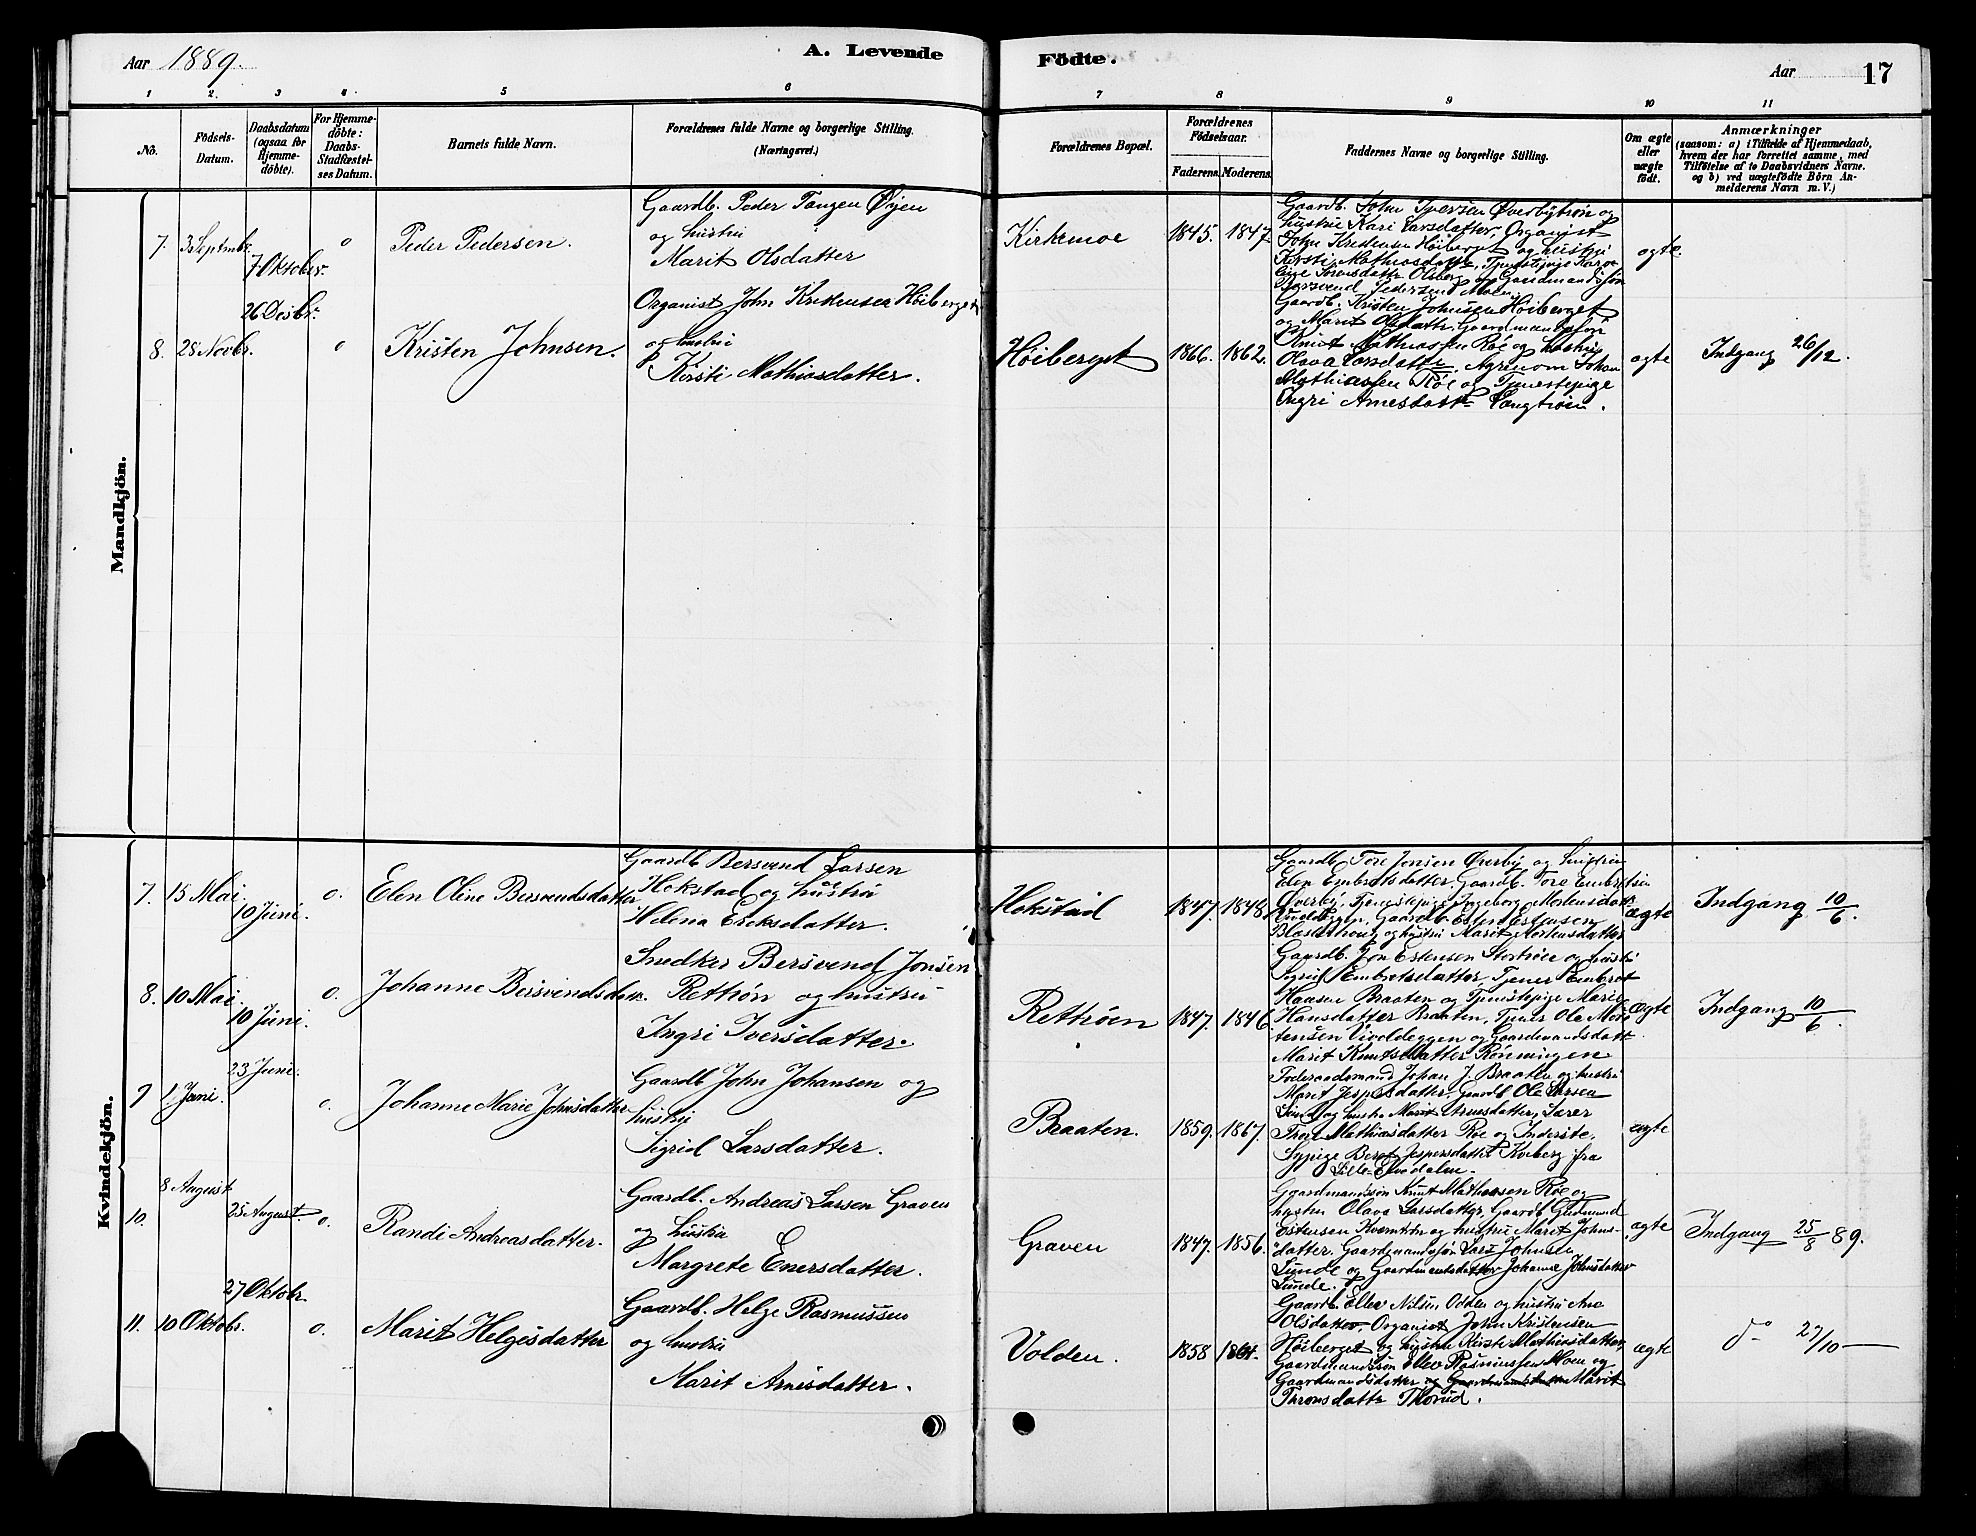 Aar 1889.
A. Levende
Födte.
Aar
17
1
2.
3
4
5
6
7
8
9
10
11
No.
Födsels-
Datum.
Daabsdatum
(ogsaa for
Hjemme-
döbte).
For Hjemme-
döbte:
Daabs-
Stadfæstel-
ses Datum.
Barnets fulde Navn.
Forældrenes fulde Navne og borgerlige Stilling.
(Næringsvei.)
Forældrenes Bopæl.
Forældrenes
Födselsaar.
Faderens.
Moderens.
Faddernes Navne og borgerlige Stilling.
Om ægte
eller
uægte
födt.
Anmærkninger
(saasom: a) i Tilfælde af Hjemmedaab,
hvem der har forrettet samme, med
Tilföielse af to Daabsvidners Navne.
og b) ved uægtefödte Börn An-
melderens Navn m. V.)
Mandkjön.
7.
3 Septmbr.
7 Oktober.
o
Peder Pedersen.
Gaardb. Peder Tangen Øien
og hustru
Marit Olsdatter
Kirkemoe
1845.
1847
Gaardb. John Iversen Øverbytrøn og
hustru Kari Larsdatter, Organist
John Kristensen Høiberget og hustru
Kirsti Mathiasdatter, Tjenestepige Karoline
Bersvend Pedersen Moen.
ægte.
8.
28 Novbr.
26 Desbr.
o
Kristen Johnsen.
Organist John Kristensen Høiberget
og hustru
Kirsti Mathiasdatter.
Høiberget
1866.
1862.
Gaardb. Kristen Johnsen Høiberget
og Marit Olsdatter, Gaardmandssøn
Knut Mathiassen Røe og hustru
Olava Larsdatter, Agronom Johan
Mathiassen Røe og Tjenestepige
Ingri Arnesdatter Langtrøen.
ægte
Indgang 26/12.
Kvindekjön.
7.
15 Mai.
10 Juni.
o.
Elen Oline Bersvendsdatter
Gaardb Bersvend Larsen
Hokstad og hustru
Helena Eriksdatter.
Hokstad
1847.
1848
Gaardb. Tore Jonsen Øverby og hustru
Elen Embretsdatter, Gaardb. Tore Embretsen
Øverby, Tjenestepige Ingeborg Mortensdatter
Gaardb. Esten Estensen
og hustru Marit Mortensdatter
ægte
Indgang 10/6.
8.
10 Mai.
10 Juni.
o.
Johanne Bersvendsdatr.
Snedker Bersvend Jonsen
Rettrøn og hustru
Ingri Iversdatter.
Rettrøen
1847.
1846
Gaardb. Jon Estensen og hustru
Sigrid Embretsdatter, Tjener Embret
Haasen Braaten og Tjenestepige Marie
Hansdatter Braaten, Tjener Ole Mor-
tensen og Gaardmandsdatt.
Marit Knutsdatter Rønningen
ægte
Indgang 10/6.
9
1. Juni.
23 Juni.
o.
Johanne Marie Johnsdatter
Gaardb John Johansen og
hustru
Sigrid Larsdatter.
Braaten.
1859.
1867.
Føderaadsmand Johan J. Braaten og hustru
Marit Jespersdatter, Gaardb Ole Larsen
og hustru Marit Arnesdatter, Lærer
Mathiasdatter Røe og Inderste,
Sypige Beret Jespersdatter Koberg fra
Lille-Elvedalen.
ægte
10.
8 August
25 August.
o.
Randi Andreasdatter.
Gaardb. Andreas Larsen Graven
og hustru
Margrete Enersdatter.
Graven
1847.
1856.
Gaardmandssøn Knut Mathiesen Røe og
hustru Olava Larsdatter, Gaardb Gudmund
Estensen og hustru Marit Johns-
datter, Gaardmandssøn Lars Johnsen
Lunde og Gaardmandsdatter Johanne Johnsdatter
Lunde.
ægte
Indgang 25/8 89.
11.
10 Oktobr.
27 Oktobr.
o.
Marit Helgesdatter
Gaardb. Helge Rasmussen
og hustru
Marit Arnesdatter.
Volden.
1858
1864.
Gaardb. Ellev Nilsen Odden og hustru Ane
Olsdatter, Organist John Kristensen
Høiberget og hustru Kirsti Mathiasdatter,
Gaardmandssøn Ellev Rasmussen Moen og
Gaardmandsdatter og Gaardmandsdatter Marit
Thronsdatter Thorud.
ægte
do 27/10 —